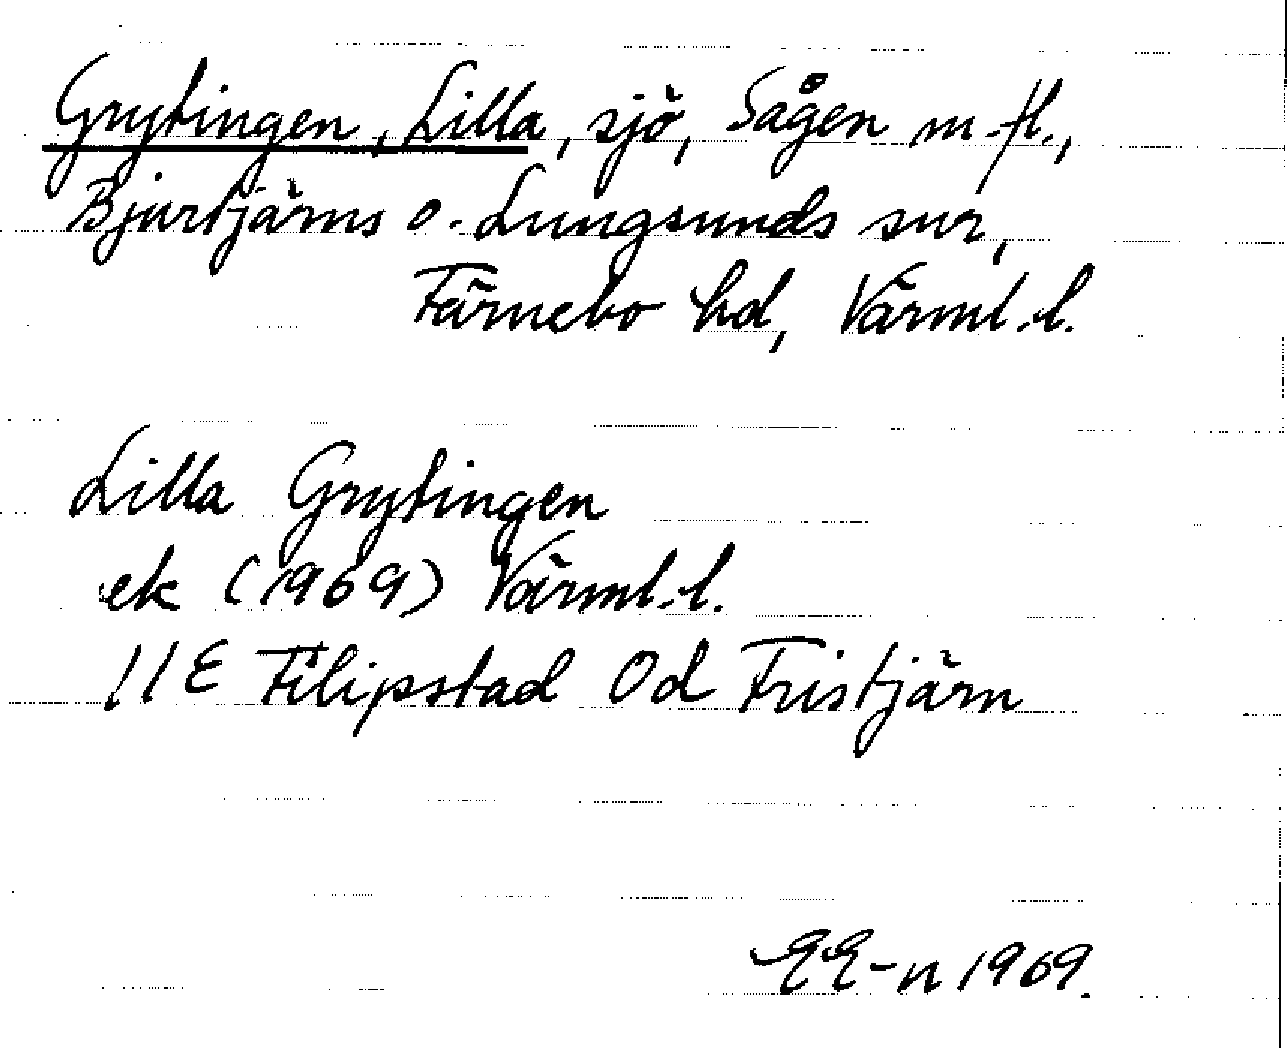 Grytingen, Lilla, sjö, Sågen m. fl.,
Bjurtjärns o. Lungsunds snr,
Färnebo hd, Värml. l.
Lilla Grytingen
ek (1969) Värml. l.
11E Filipstad 0d Fristjärn
EE-n 1969.